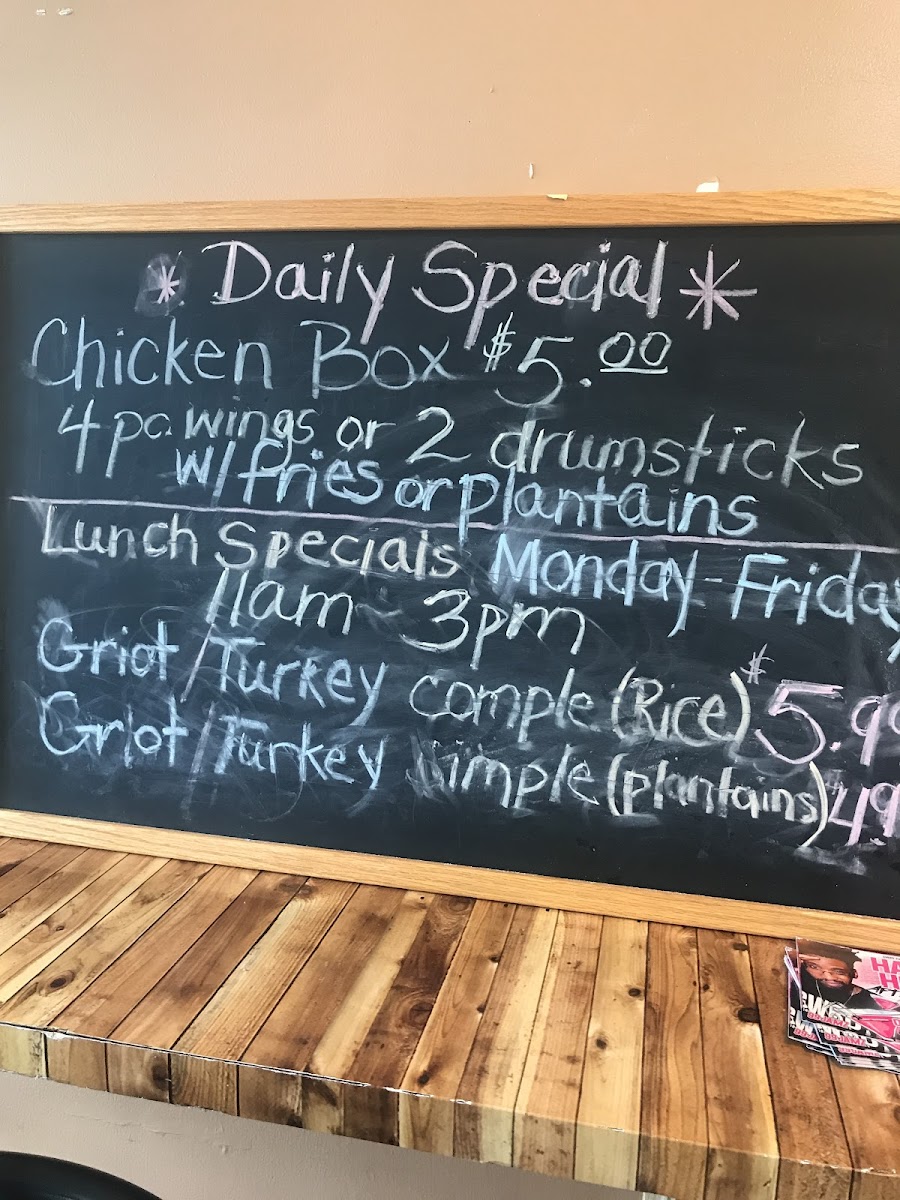 * Daily Special *
Chicken Box $5.00
4pc wings or 2 drumsticks
w/ fries or plantains
Lunch Specials Monday - Friday
11am - 3pm
Griot / Turkey comple (Rice) $5.99
Griot / Turkey simple (plantains) $4.9